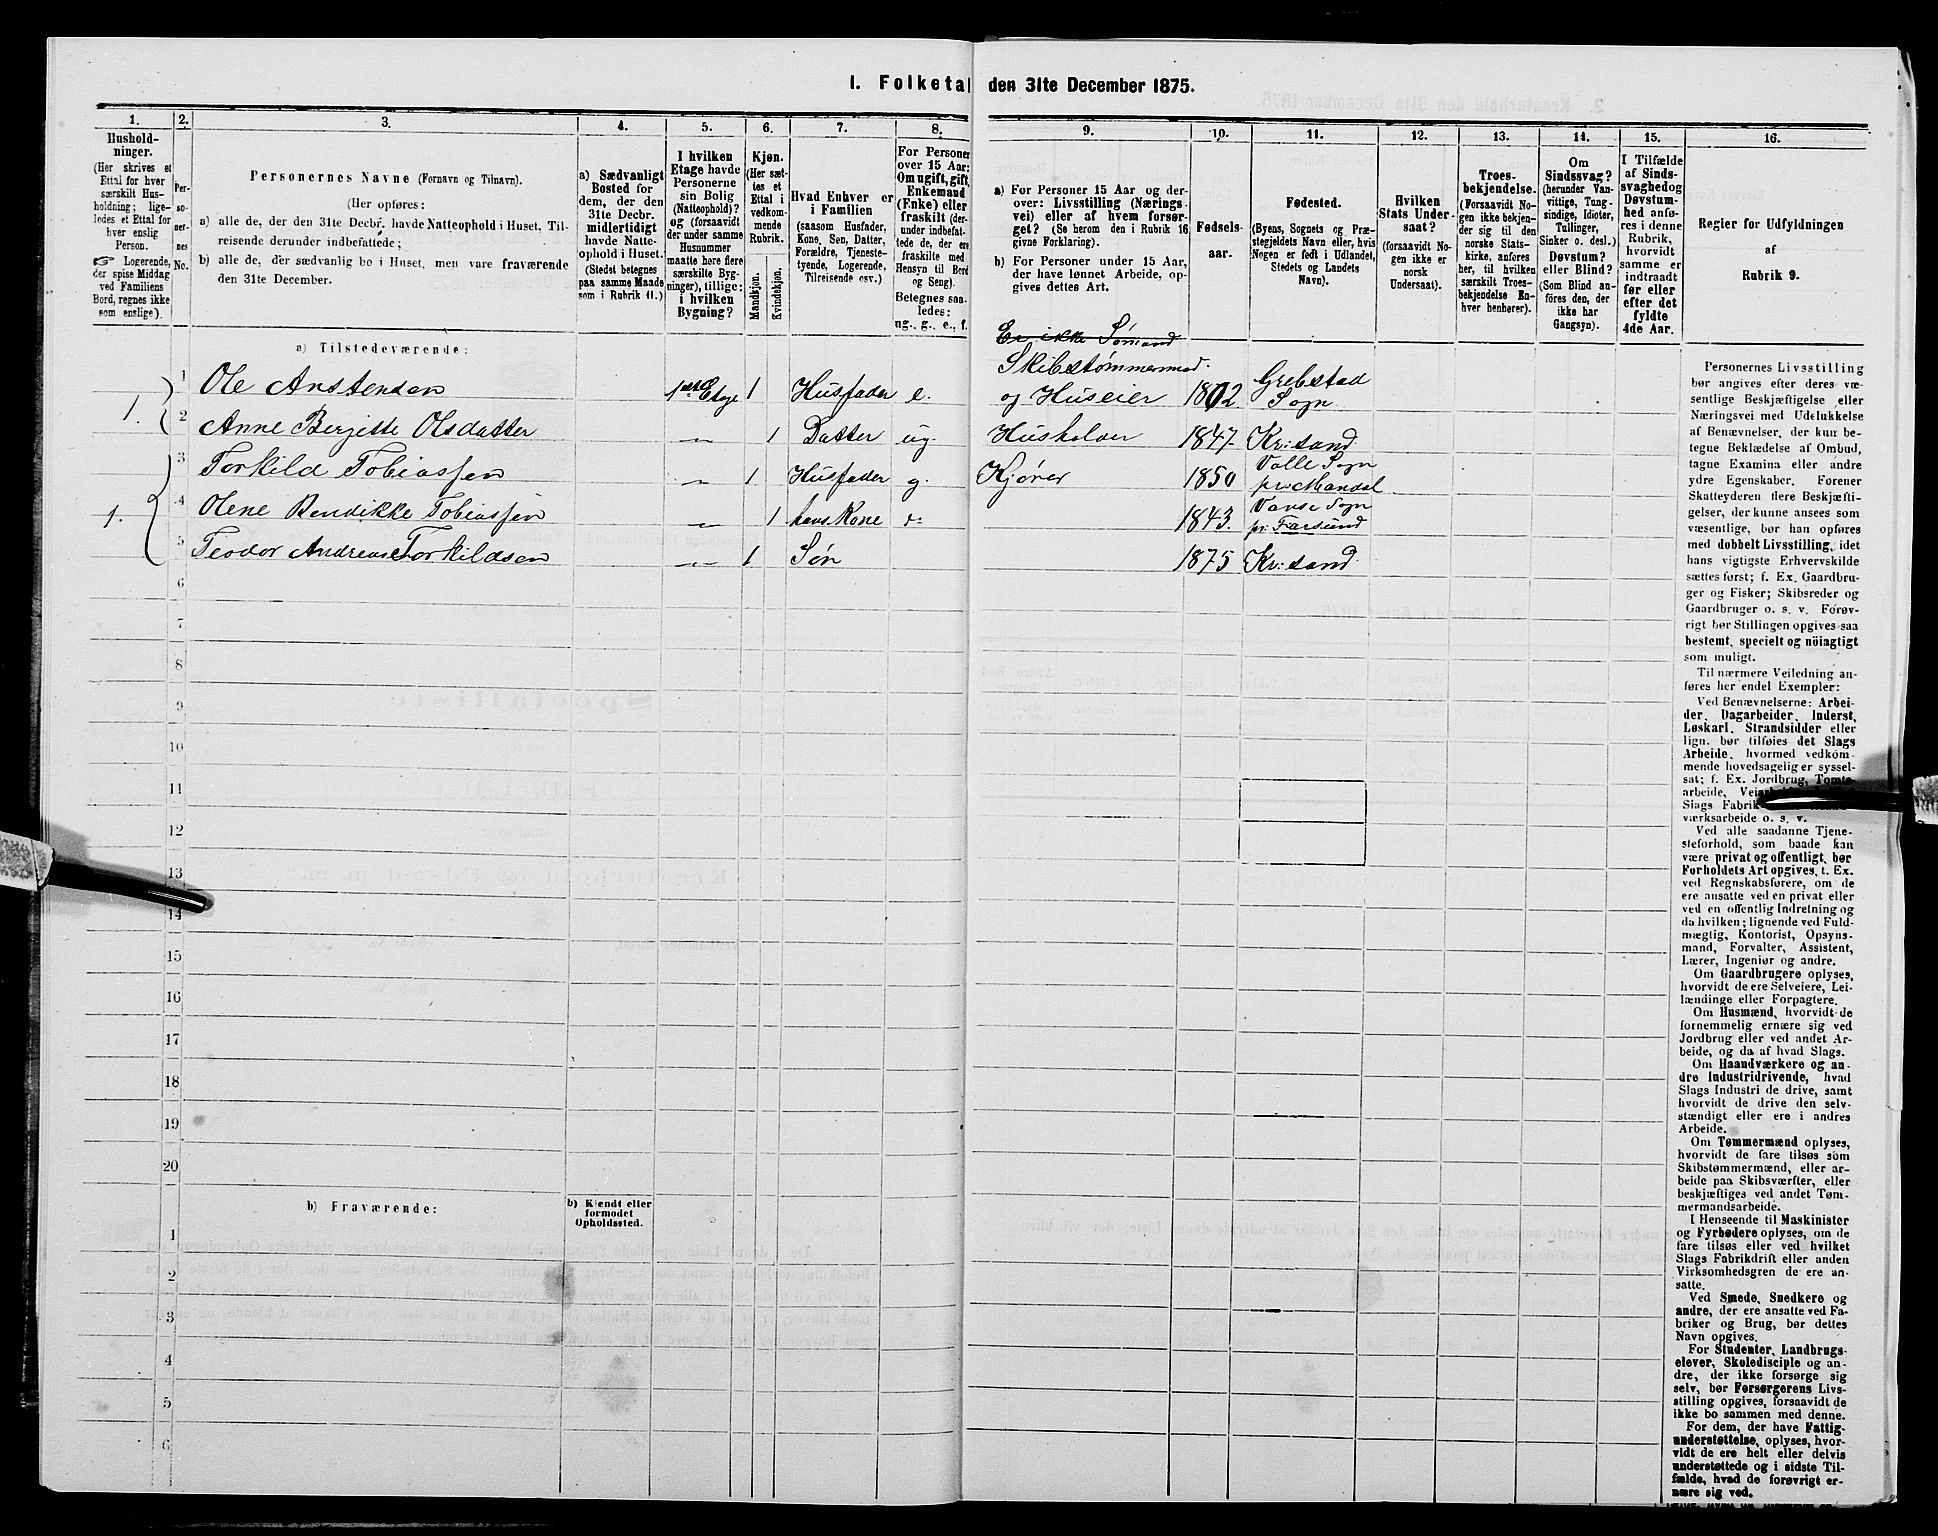 1. Folketal den 31te December 1875.
1.
2.
3.
4.
5.
6.
7.
8.
9.
10.
11.
12.
13.
14.
15.
16.
Hushold-
ninger.
(Her skrives et
Ettal for hver
særskilt Hus-
holdning; lige-
ledes et Ettal for
hver enslig
Person.
☞ Logerende,
der spise Middag
ved Familiens
Bord, regnes ikke
som enslige).
Per-
so-
ner-
nes
No.
Personernes Navne (Fornavn og Tilnavn).
(Her opføres:
a) alle de, der den 31te Decbr. havde Natteophold i Huset, Til-
reisende derunder indbefattede;
b) alle de, der sædvanlig bo i Huset, men vare fraværende
den 31te December.
a) Sædvanligt
Bosted for
dem, der den
31te Decbr.
midlertidigt
havde Natte-
ophold i Huset.
(Stedet betegnes
paa samme Maade
som i Rubrik 11.)
I hvilken
Etage havde
Personerne
sin Bolig
(Natteophold)?
og (forsaavidt
der under samme
Husnummer
maatte høre flere
særskilte Byg-
ninger), tillige:
i hvilken
Bygning?
Kjøn.
(Her sæt-
tes et
Ettal i
vedkom-
mende
Rubrik.
Mandkjøn.
Kvindekjøn.
Hvad Enhver er
i Familien
(saasom Husfader,
Kone, Søn, Datter,
Forældre, Tjeneste-
tyende, Logerende,
Tilreisende osv.)
For Personer
over 15 Aar:
Om ugift, gift,
Enkemand
(Enke) eller
fraskilt (der-
under indbefat-
tede de, der ere
fraskilte med
Hensyn til Bord
og Seng).
Betegnes saa-
ledes:
ug., g., e., f.
a) For Personer 15 Aar og der-
over: Livsstilling (Nærings-
vei) eller af hvem forsør-
get? (Se herom den i Rubrik 16
givne Forklaring).
b) For Personer under 15 Aar,
der have lønnet Arbeide, op-
gives dettes Art.
Fødsels-
aar.
Fødested.
(Byens, Sognets og Præ-
stegjeldets Navn eller, hvis
Nogen er født i Udlandet,
Stedets og Landets
Navn).
Hvilken
Stats Under-
saat?
(forsaavidt No-
gen ikke er
norsk
Undersaat).
Troes-
bekjendelse.
(Forsaavidt No-
gen ikke bekjen-
der sig til den
norske Stats-
kirke, anføres
her, til hvilken
særskilt Troes-
bekjendelse En-
hver henhører).
Om
Sindssvag?
(herunder Van-
vittige, Tung-
sindige, Idioter,
Tullinger,
Sinker o. desl.)
Døvstum?
eller Blind?
(Som Blind an-
føres den, der
ikke har
Gangsyn).
I Tilfælde
af Sinds-
svaghed og
Døvstum-
hed anfø-
res i denne
Rubrik,
hvorvidt
samme er
indtraadt
før eller
efter det
fyldte
4de Aar.
Regler for Udfyldningen
af
Rubrik 9.
a) Tilstedeværende:
Er ikke Sømand
Skibstømmermad.
1. 1 Ole Anstensen 1ste Etage 1 Husfader e. og Huseier 1802. Grebstad Sogn
2 Anne Bergitte Olsdatter " 1 Datter ug. Husholder 1847. Kr:sand
1. 3 Torkild Tobiassen " 1 Husfader g. Kjører 1850 Valle Sogn pr: Mandal
4 Olene Bendikke Tobiassen " 1 hans Kone d: 1843. Vanse Sogn pr: Farsund
5 Teodor Andreas Torkildsen " 1 Søn 1875 Kr:sand
6
7
8
9
10
11
12
13
14
15
16
17
18
19
20
b) Fraværende:
b) Kjendt eller
formodet
Opholdssted.
1
2
3
4
5
6
Personernes Livsstilling
bør angives efter deres væ-
sentlige Beskjæftigelse eller
Næringsvei med Udelukkelse
af Benævnelser, der kun be-
tegne Beklædelse af Ombud,
tagne Examina eller andre
ydre Egenskaber. Forener
Skatteyderen flere Beskjæfti-
gelser, der kunne ansees som
væsentlige, bør han opføres
med dobbelt Livsstilling, idet
hans vigtigste Erhvervskilde
sættes først; f. Ex. Gaardbru-
ger og Fisker; Skibsreder og
Gaardbruger o. s. v. Forøv-
rigt bør Stillingen opgives saa
bestemt, specielt og nöiagtigt
som muligt.
Til nærmere Veiledning an-
føres her endel Exempler:
Ved Benævnelserne: Arbei-
der, Dagarbeider, Inderst,
Løskarl, Strandsidder eller
lign. bør tilføies det Slags
Arbeide, hvormed vedkom-
mende hovedsagelig er syssel-
sat; f. Ex. Jordbrug, Tomte-
arbeide,
Slags Fabrik
værksarbeide o. s. v.
Ved alle saadanne Tjene-
steforhold, som baade kan
være privat og offentligt, bør
Forholdets Art opgives, t. Ex.
ved Regnskabsførere, om de
ere ansatte ved en privat eller
ved en offentlig Indretning og
da hvilken; lignende ved Fuld-
mægtig, Kontorist, Opsyns-
mand, Forvalter, Assistent,
Lærer, Ingeniør og andre.
Om Gaardbrugere oplyses,
hvorvidt de ere Selveiere, Lei-
lændinge eller Forpagtere.
Om Husmænd, hvorvidt de
fornemmelig ernære sig ved
Jordbrug eller ved andet Ar-
beide, og da af hvad Slags.
Om Haandværkere og an-
dre Industridrivende, hvad
Slags Industri de drive, samt
hvorvidt de drive den selv-
stændigt eller ere i andres
Arbeide.
Om Tømmermænd oplyses,
hvorvidt de fare tilsøs som
Skibstømmermænd, eller ar-
beide paa Skibsværfter, eller
beskjæftiges ved andet Tøm-
mermandsarbeide.
I Henseende til Maskinister
og Fyrbødere oplyses, om de
fare tilsøs eller ved hvilket
Slags Fabrikdrift eller anden
Virksomhedsgren de ere an-
satte.
Ved Smede, Snedkere og
andre, der ere ansatte ved Fa-
briker og Brug, bør dettes
Navn opgives.
For Studenter, Landbrugs-
elever, Skoledisciple og an-
dre, der ikke forsørge sig
selv, bør Forsørgerens Livs-
stilling opgives, forsaavidt de
ikke bo sammen med denne.
For dem, der have Fattig-
understøttelse, oplyses, hvor-
vidt de ere helt eller delvis
understøttede og i sidste Til-
fælde, hvad de forøvrigt er-
nære sig ved.